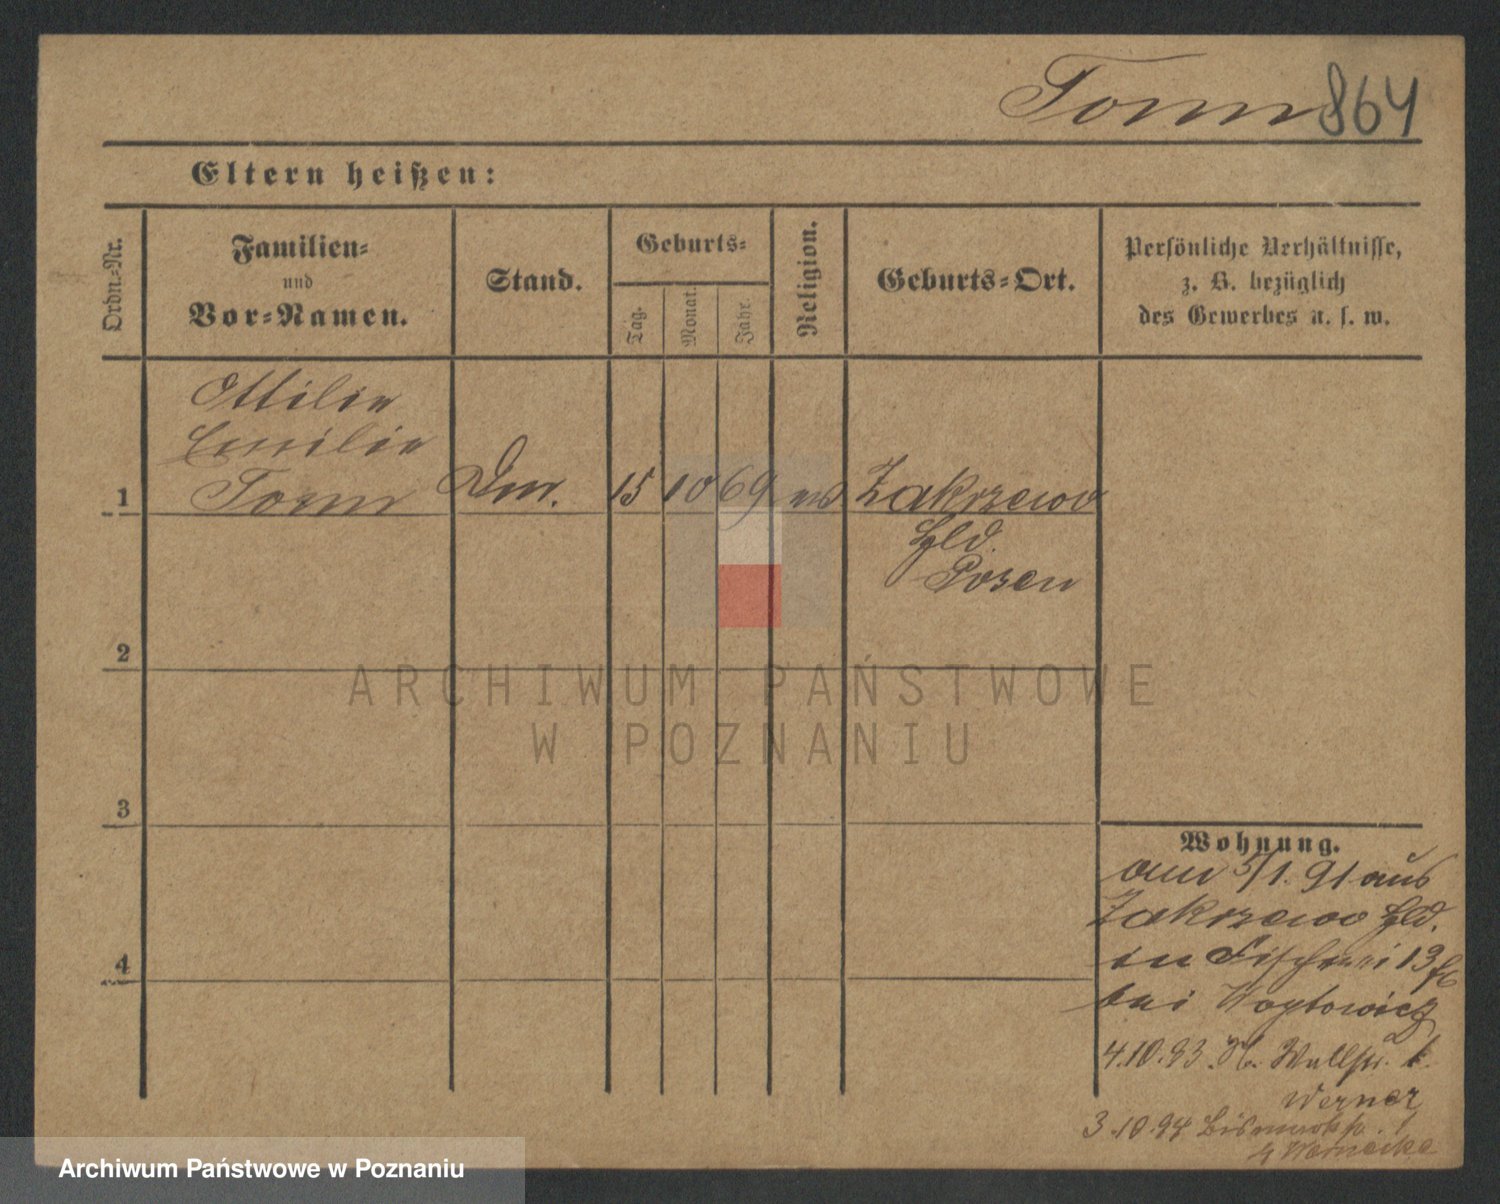 Tonn 864
Eltern heißen:
Ordn.=Nr.
Familien=
und
Vor=Namen.
Stand.
Geburts=
Tag.
Monat.
Jahr.
Religion.
Geburts=Ort.
Persönliche Verhältnisse,
z. B. bezüglich
des Gewerbes u. s. w.
Ottilie
Emilie
1 Tonn 15 10 69 Zakrzewo
Hld.
Posen
2
3
4
Wohnung.
am 5/1. 91 aus
Zakrzewo Hld.
in Fischerei 13
bei
4.10.93. Wallstr. 1.
Werner
3.10.94 Bismarckstr. 1
Wernecke
ARCHIWUM PAŃSTWOWE
W POZNANIU
Archiwum Państwowe w Poznaniu